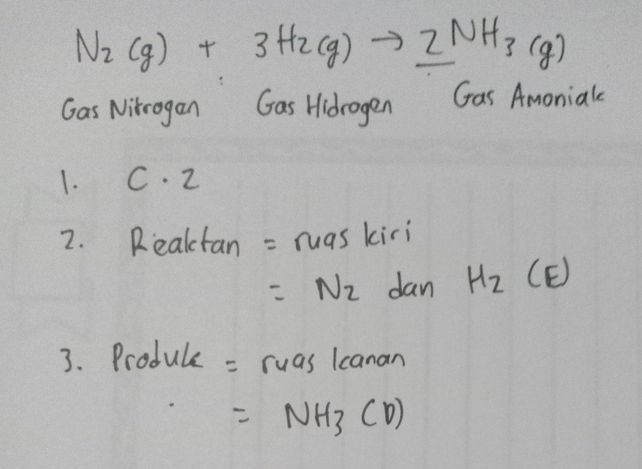 N₂ (g) + 3H₂ (g) → 2NH₃ (g)
Gas Nitrogen Gas Hidrogen Gas Amoniak
1. C. 2
2. Reaktan = ruas kiri
= N₂ dan H₂ (E)
3. Produk = ruas kanan
= NH₃ (D)